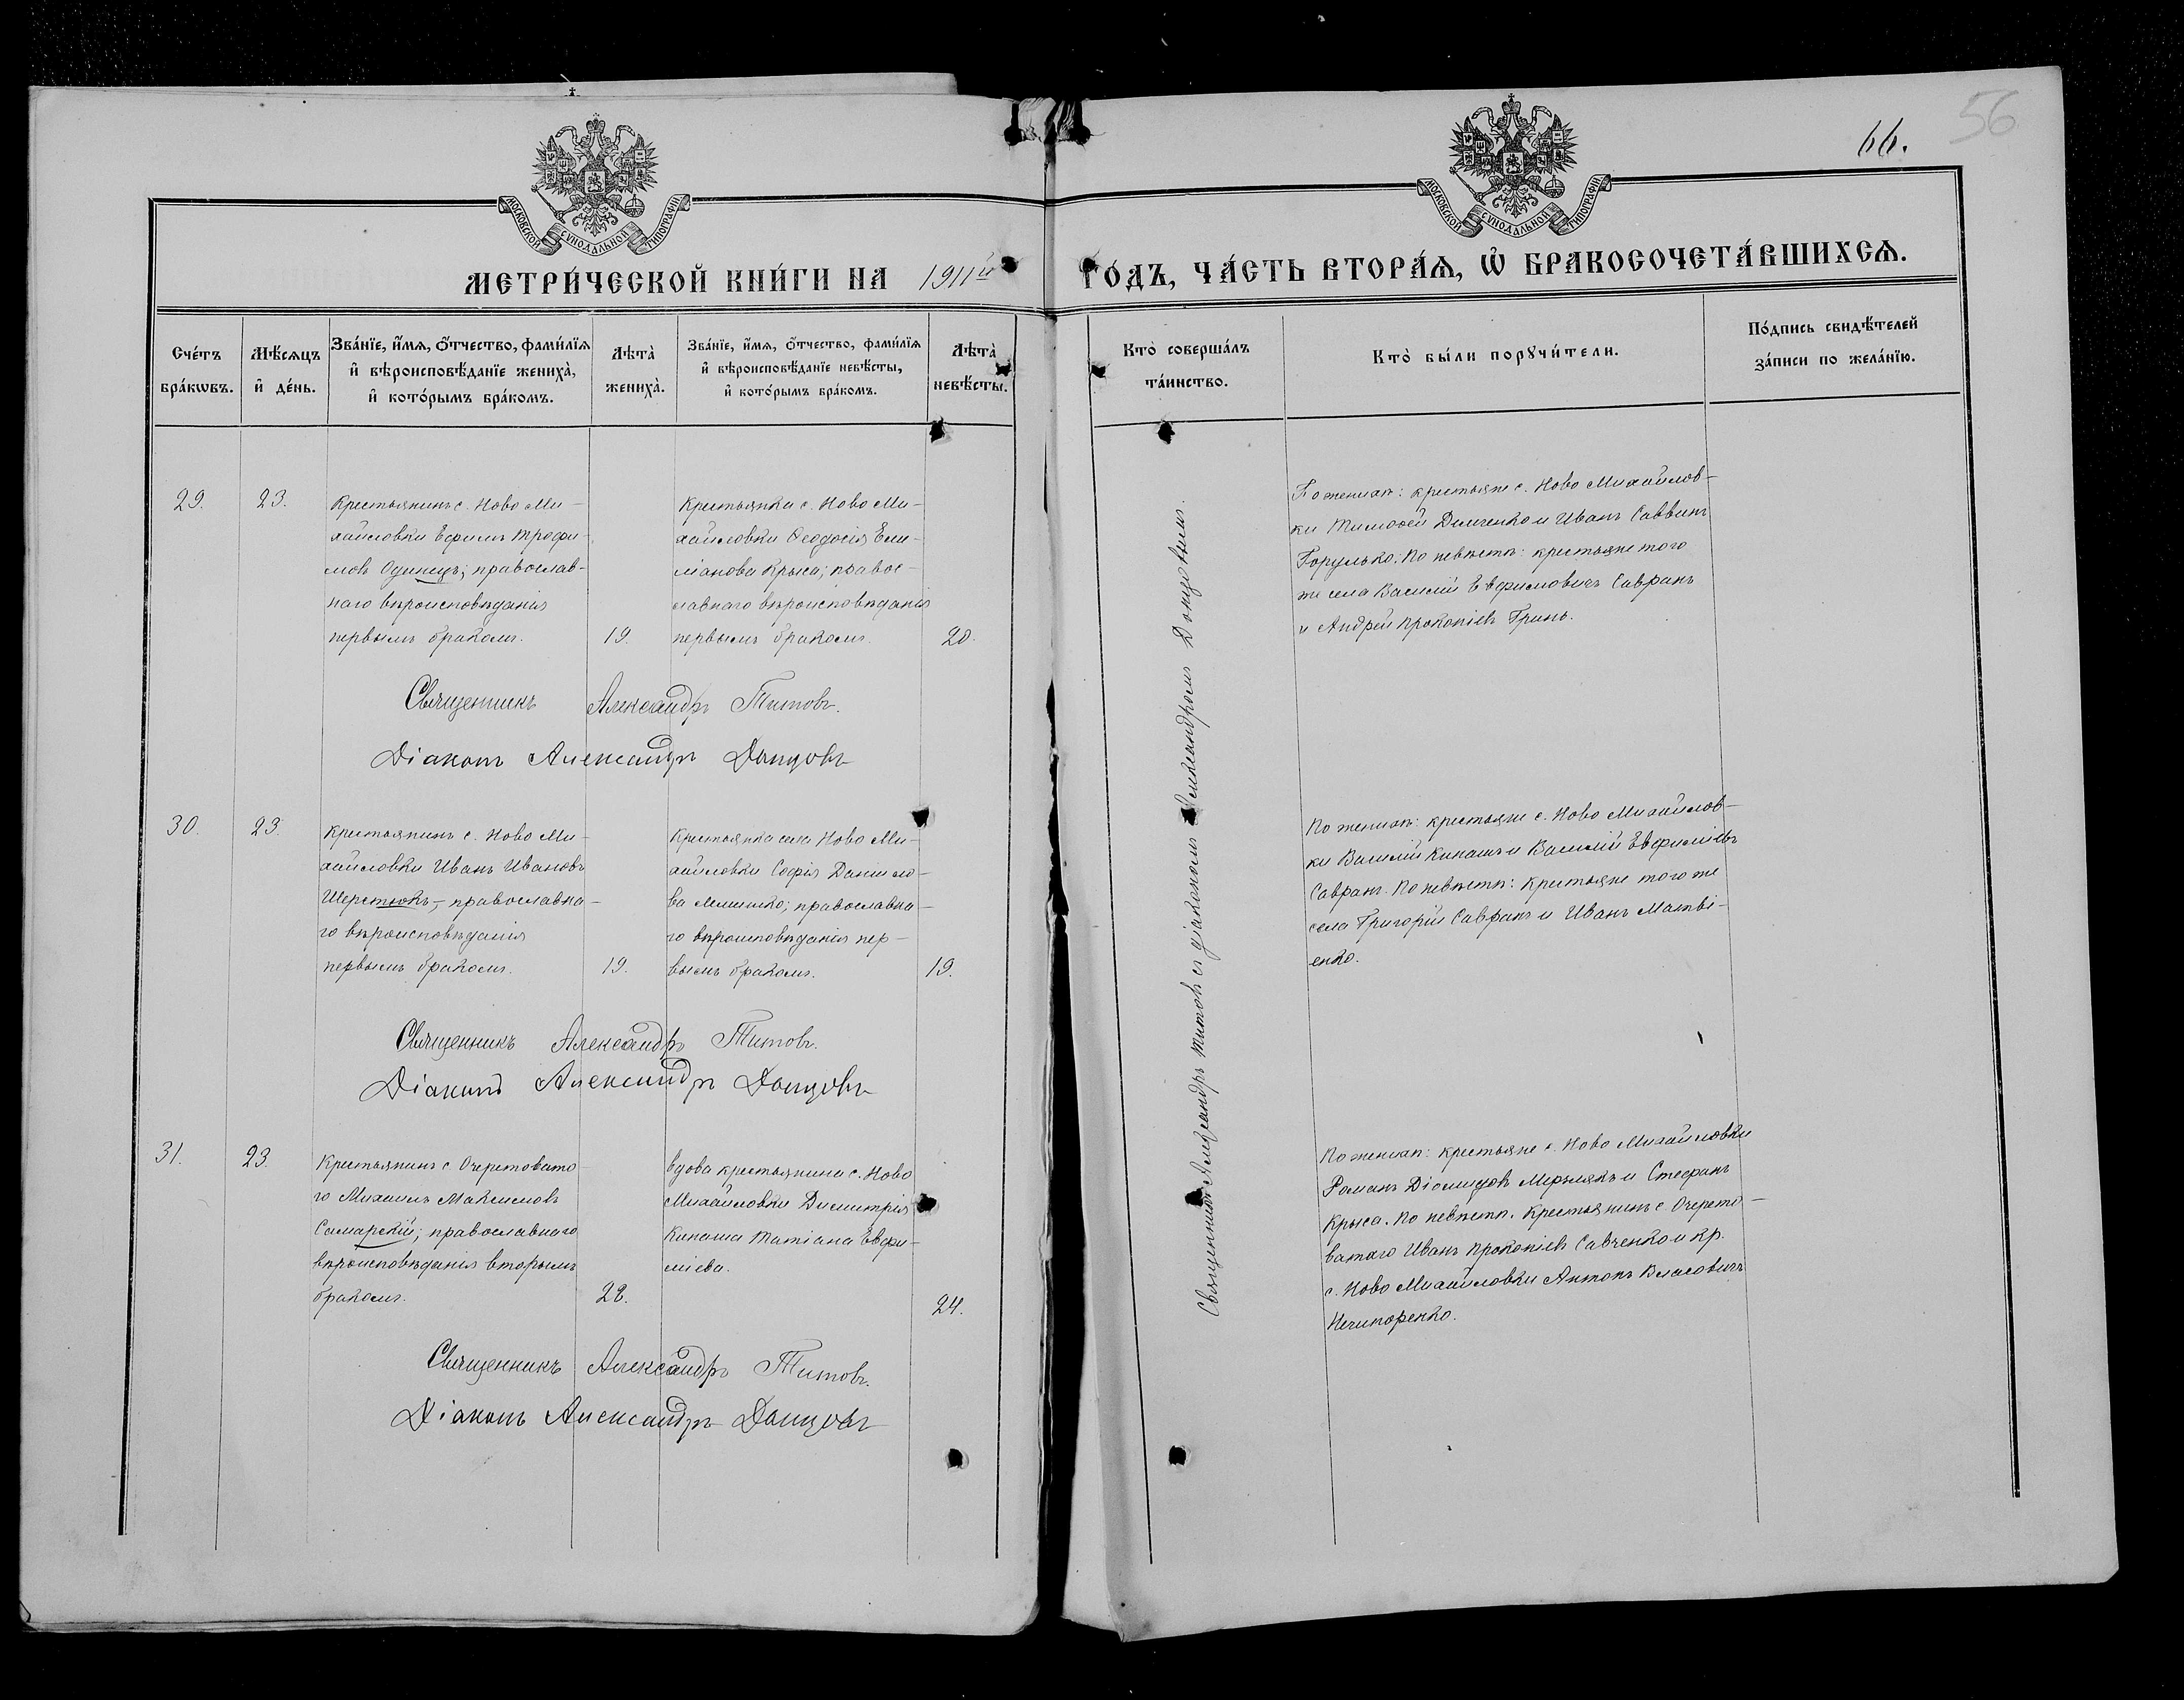 56
66.
МОСКОВСКОЙ СѴНОДАЛЬНОЙ ТИПОГРАФІИ
МОСКОВСКОЙ СѴНОДАЛЬНОЙ ТИПОГРАФІИ
МЕТРИ́ЧЕСКОЙ КНИ́ГИ НА 1911й ГО́ДЪ, ЧА́СТЬ ВТОРА́Ѧ, Ѡ҆ БРАКОСОЧЕТА́ВШИХСѦ.
Сче́тъ
бра́кѡвъ.
Мѣ́сѧцъ
и҆ де́нь.
Зва́нїе, и҆́мѧ, ѻ҆́тчество, фами́лїѧ
и҆ вѣроисповѣ́данїе жениха̀,
и҆ кото́рымъ бра́комъ.
Лѣта̀
жениха̀.
Зва́нїе, и҆́мѧ, ѻ҆́тчество, фами́лїѧ
и҆ вѣроисповѣ́данїе невѣ́сты,
и҆ кото́рымъ бра́комъ.
Лѣта̀
невѣ́сты.
Кто̀ соверша́лъ
та́инство.
Кто̀ бы́ли порꙋчи́тели.
По́дпись свидѣ́телей
за́писи по жела́нїю.
29.
23.
Крестьянинъ с. Ново Ми-
хайловки Ефимъ Трофи-
мовъ Одинецъ; православ-
наго вѣроисповѣданія
первымъ бракомъ.
19.
Крестьянка с. Ново Ми-
хайловки Ѳеодосія Еми-
ліанова Крыса; правос-
лавнаго вѣроисповѣданія
первымъ бракомъ.
20.
По женихѣ: крестьяне с. Ново Михайлов-
ки Тимоѳей Демченко и Иванъ Саввинъ
Горулько. По невѣстѣ: крестьяне того
же села Василій Евфимовичъ Савранъ
и Андрей Прокопіевъ Гринь.
Священникъ Александръ Титовъ.
Діаконъ Александръ Донцовъ
30.
23.
Крестьянинъ с. Ново Ми-
хайловки Иванъ Ивановъ
Шерстюкъ, православна-
го вѣроисповѣданія
первымъ бракомъ.
19.
Крестьянка села Ново Ми-
хайловки Софія Даніило-
ва православна-
го вѣроисповѣданія пер-
вымъ бракомъ.
19.
По женихѣ: крестьяне с. Ново Михайлов-
ки Василій Кипашъ и Василій Евфиміевъ
Савранъ. По невѣстѣ: крестьяне того же
села Григорій Савранъ и Иванъ Матві-
енко.
Священникъ Александръ Титовъ.
Діаконъ Александръ Донцовъ
31.
23.
Крестьянинъ с Очеретовато-
го Михаилъ Максимовъ
Самарскій; православнаго
вѣроисповѣданія вторымъ
бракомъ.
28.
вдова крестьянина с. Ново
Михайловки Димитрія
Кипаша Татіана Евфи-
міева.
24.
По женихѣ: крестьяне с. Ново Михайловки
Романъ Діомидовъ и Стефанъ
Крыса. По невѣстѣ. Крестьянинъ с. Очерето-
ватаго Иванъ Прокопіевъ Савченко и кр.
с. Ново Михайловки Антонъ Власовичъ
Нечипоренко.
Священникъ Александръ Титовъ.
Діаконъ Александръ Донцовъ
Священникъ Александръ Титовъ съ діакономъ Александромъ Донцовымъ.